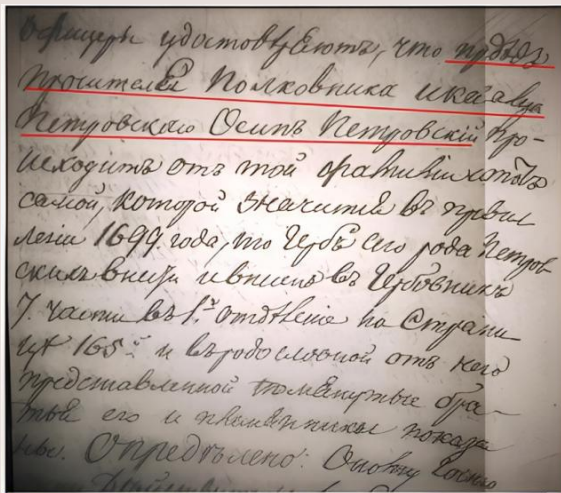 Офицеры удостовѣряютъ, что прдѣдъ
просителя Полковника и кавалера
Петровскаго Осипъ Петровскій про-
исходитъ отъ той фамиліи
самой, которой значится въ приви
легіи 1699 года, что Гербъ его рода Петров
скихъ внесенъ въ Гербовникъ
7. части въ 1.м отдѣленіе на Страни
цѣ 165й и въ родословной отъ него
представленной помянутые бра-
тья его и племянники показа
ны. Опредѣлено: Оному